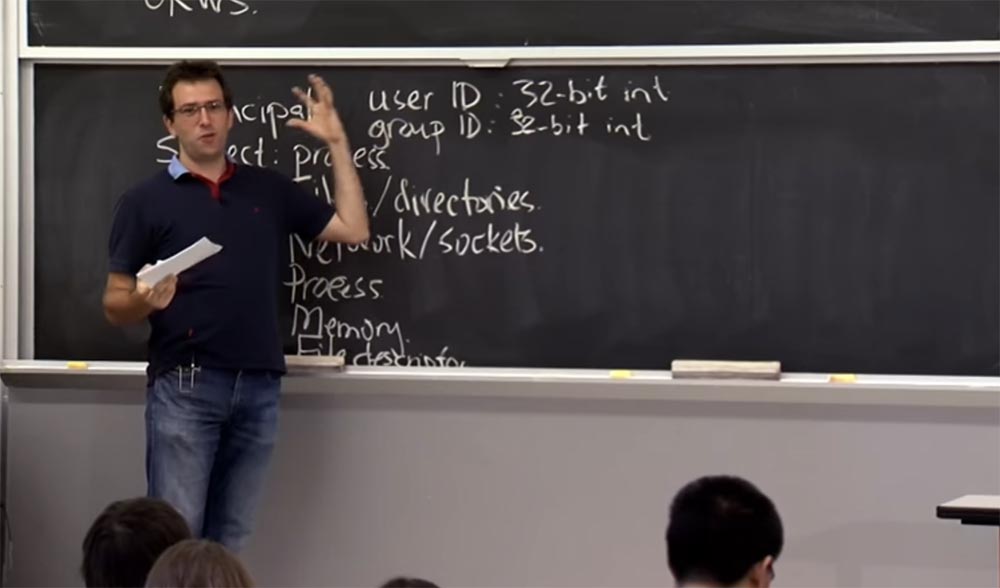 OKWS.
ncipal user ID : 32-bit int
group ID : 32-bit int
S ect : process
/directories.
Network/sockets.
Process
Memory.
File descriptor